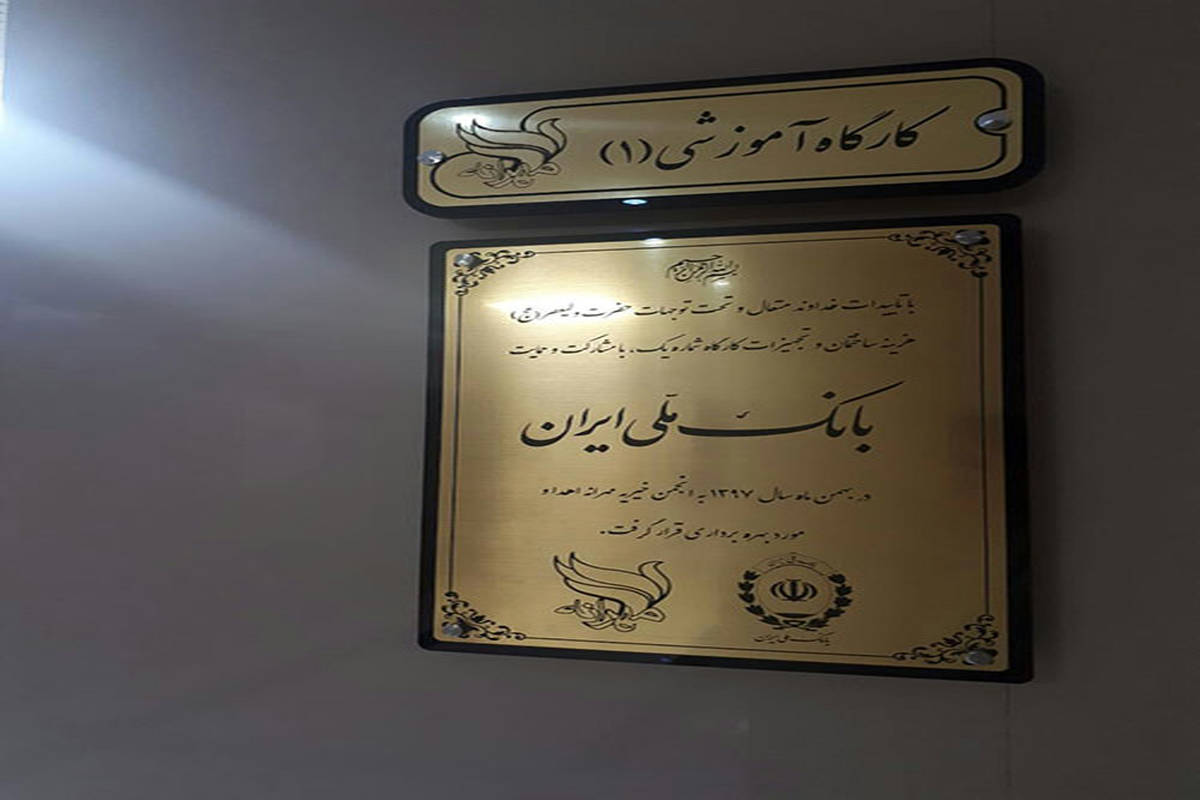 کارگاه آموزشی (۱)
مهرانه
بسم الله الرحمن الرحیم
با تاییدات خداوند متعال و تحت توجهات حضرت ولیعصر (عج)
هزینه ساختمان و تجهیزات کارگاه شماره یک، با مشارکت و حمایت
بانک ملی ایران
در بهمن ماه سال ۱۳۹۷ به انجمن خیریه مهرانه اهدا و
مورد بهره برداری قرار گرفت.
مهرانه
بانک ملی ایران